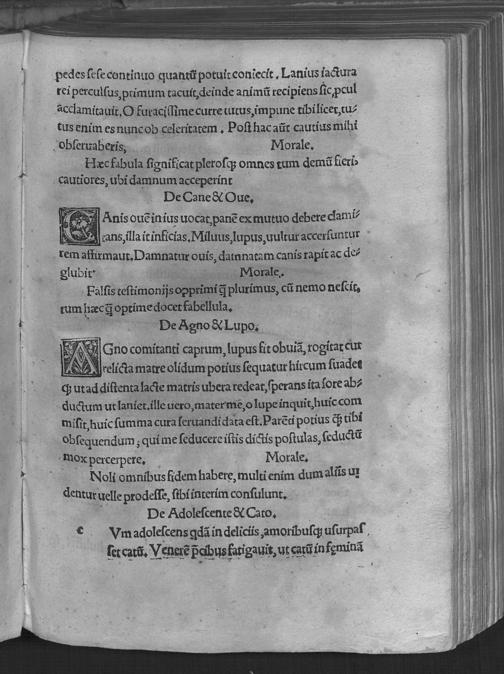 pedes sese continuo quantũ potuit coniecit. Lanius iactura
rei perculsus, primum tacuit, deinde animũ recipiens sic, ꝓcul
acclamitauit. O furacissime curre tutus, impune tibi licet, tu-
tus enim es nunc ob celeritatem. Post hac aũt cautius mihi
obseruaberis, Morale.
Hæc fabula significat plerosq; omnes tum demũ fieri
cautiores, ubi damnum acceperint
De Cane & Oue.
CAnis ouẽ in ius uocat, panẽ ex mutuo debere clami-
tans, illa it inficias. Miluus, lupus, uultur accersuntur
rem affirmaut. Damnatur ouis, damnatam canis rapit ac de-
glubit. Morale.
Falsis testimonijs opprimi q̃ plurimus, cũ nemo nescit,
tum hæc q̃ optime docet fabellula.
De Agno & Lupo.
AGno comitanti caprum, lupus fit obuiã, rogitat cur
relicta matre olidum potius sequatur hircum suadet
q; ut ad distenta lacte matris ubera redeat, sperans ita fore ab-
ductum ut laniet. ille uero, mater mẽ, o lupe inquit, huic com
misit, huic summa cura seruandi data est. Parẽti potius q̃ tibi
obsequendum, qui me seducere istis dictis postulas, seductũ
mox percerpere. Morale.
Noli omnibus fidem habere, multi enim dum alijs ui
dentur uelle prodesse, sibi interim consulunt.
De Adolescente & Cato.
c Vm adolescens q̃dã in delicijs, amoribusq; usurpas
set catũ. Venerẽ p̃cibus fatigauit, ut catũ in feminã